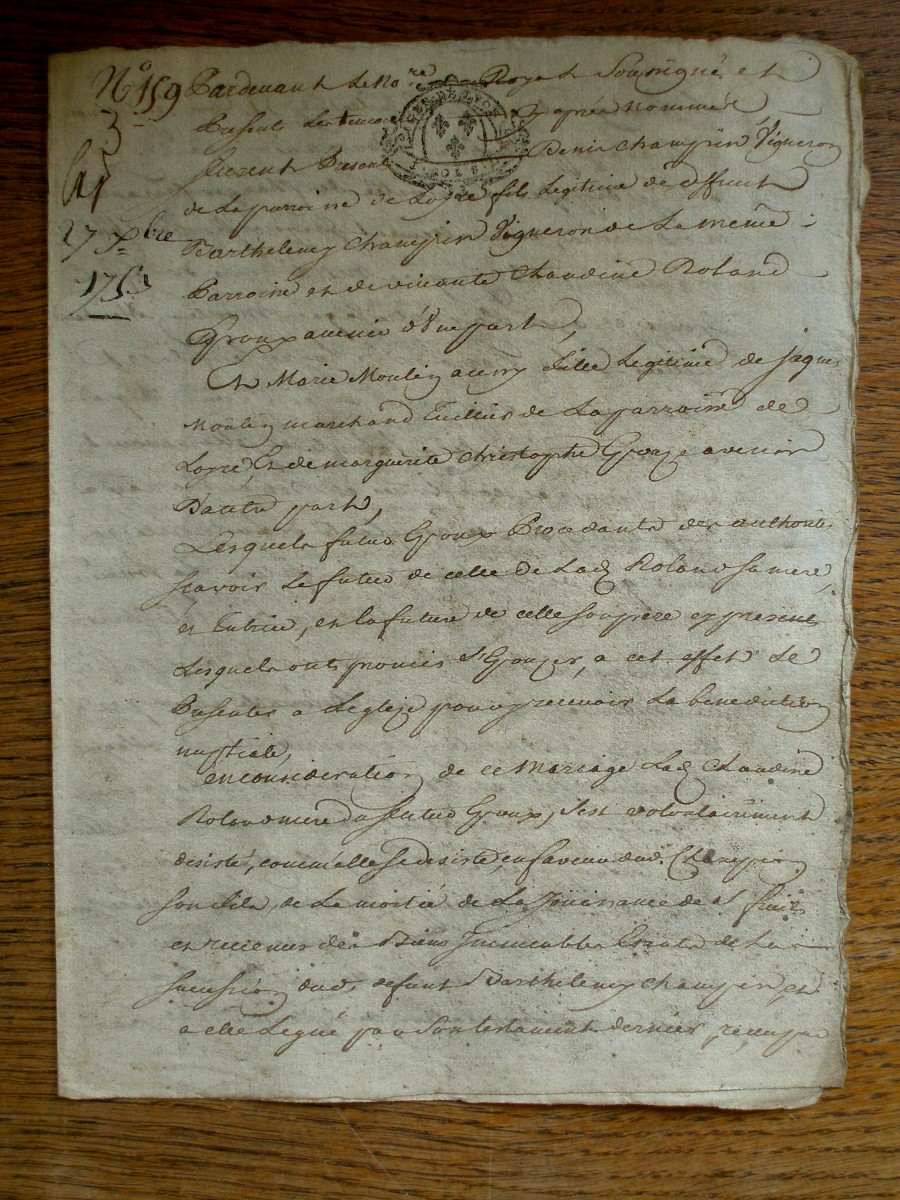 N° 159
3
17 Xbre
175
GEN DE LYON
Pardevant le No.re Royal Soussigné et
Presents les temoins cy après nommés
furent Presents Denis Champin Vigneron
de La parroisse de Loyre fils Legitime de deffunt
Barthelemy Champin Vigneron de La meme
Parroisse et de vivante Claudine Roland
Epoux avenir d'Une part,
Et Marie Moulin aussy fille Legitime de Jaques
Moulin marchand tuillier de La parroisse de
Loyre, Et de marguerite Christophe Epouze avenir
D'autre part,
Lesquels futurs Epoux Procedants des authorités
scavoir Le futur de celle De Lad. Roland sa mere,
et Tutrice, et la future de celle son pere cy present
Lesquels ont promis s'Epouzer, a cet effet Se
Presenter a Leglize pour y recevoir La benediction
nuptiale,
en consideration de ce Mariage Lad. Claudine
Roland mere du futur Epoux, s'est volontairement
desisté, comme elle se desiste, en faveur dud. Champin
son fils, de La moitié de La Jouissance des fruits
et revenus des Biens Immeubles Esents de La
succession dud. defunt Barthelemy Champin, et
a elle Legué par Son testament dernier, reçu par